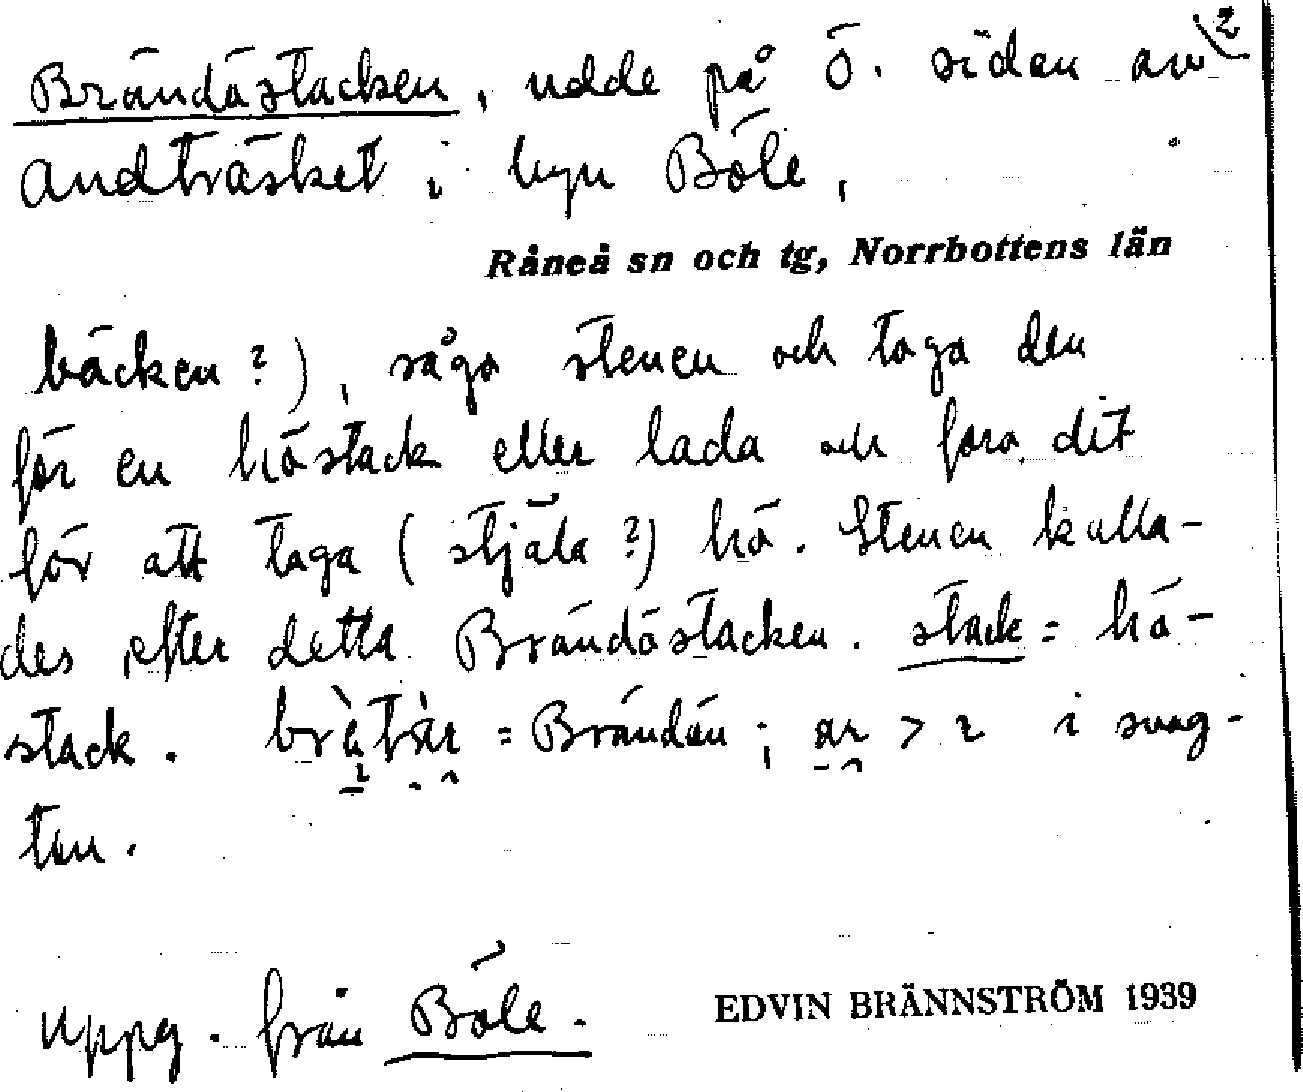 2
Brändöstacken, udde på ö. sidan av
Andträsket i byn Böle,
Råneå sn och tg, Norrbottens län
bäcken?), sågo stenen och togo den
för en höstack eller lada och foro dit
för att taga (stjäla?) hö. Stenen kalla-
des efter detta Brändöstacken. stack = hö-
stack. = Brändön; i svag-
ton.
Uppg. från Böle.
EDVIN BRÄNNSTRÖM 1939